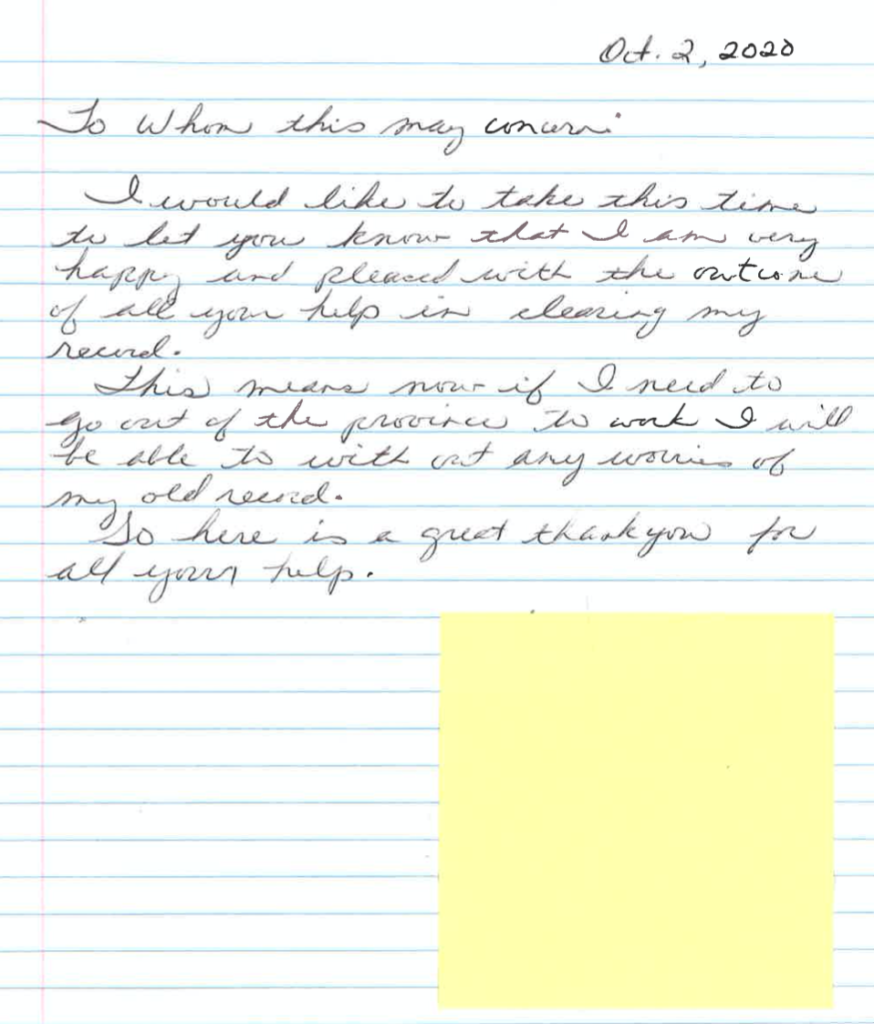 Oct. 2, 2020
To Whom this may concern:
I would like to take this time
to let you know that I am very
happy and pleased with the outcome
of all your help in clearing my
record.
This means now if I need to
go out of the province to work I will
be able to with out any worries of
my old record.
So here is a great thank you for
all your help.